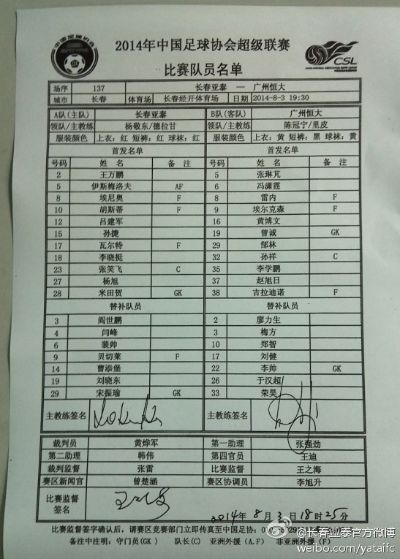 2014年中国足球协会超级联赛
CSL
比赛队员名单
场序 137 长春亚泰 — 广州恒大
城市 长春 体育场 长春经开体育场 日期 2014-8-3 19:30
A队(主队) 长春亚泰 B队(客队) 广州恒大
领队/主教练 杨敬东/德拉甘 领队/主教练 陈冠宁/里皮
服装颜色 上衣:红 短裤:红 球袜:红 服装颜色 上衣:黄 短裤:黑 球袜:黄
首发名单 首发名单
号码 姓名 备注 号码 姓名 备注
2 王万鹏 5 张琳芃
5 伊斯梅洛夫 AF 6 冯潇霆
8 埃尼奥 F 8 雷内 F
10 胡斯蒂 F 9 埃尔克森 F
12 吕建军 16 黄博文
15 孙捷 19 曾诚 GK
17 瓦尔特 F 29 郜林
18 李晓挺 32 孙祥 C
23 张笑飞 C 35 李学鹏
27 杨旭 37 赵旭日
28 米田贺 GK 38 吉拉迪诺 F
替补队员 替补队员
3 阎世鹏 2 廖力生
4 闫峰 3 梅方
6 裴帅 10 郑智
9 贝切莱 F 17 刘健
14 曹添堡 22 李帅 GK
19 刘晓东 26 于汉超
29 宋振瑜 GK 33 荣昊
主教练签名 主教练签名
裁判员 黄烨军 第一助理
第二助理 韩伟 第四官员 王迪
裁判监督 张雷 比赛监督 王之海
赛区新闻官 曾楚涵 赛区协调员 李旭升
比赛监督
签名
2014年8月3日18时25分
比赛监督签字确认后,请赛区竞赛部门立即传真至中国足协:
备注中注明:守门员(GK) 队长(C) 亚洲外援(A.F) 非亚洲外援(F)
@长春亚泰官方微博
weibo.com/yataifc